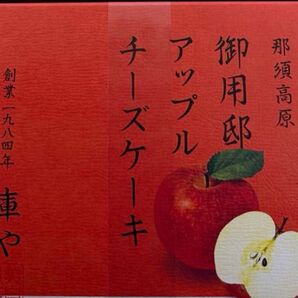 那須高原
御用邸
アップル
チーズケーキ
創業一九八四年
庫や